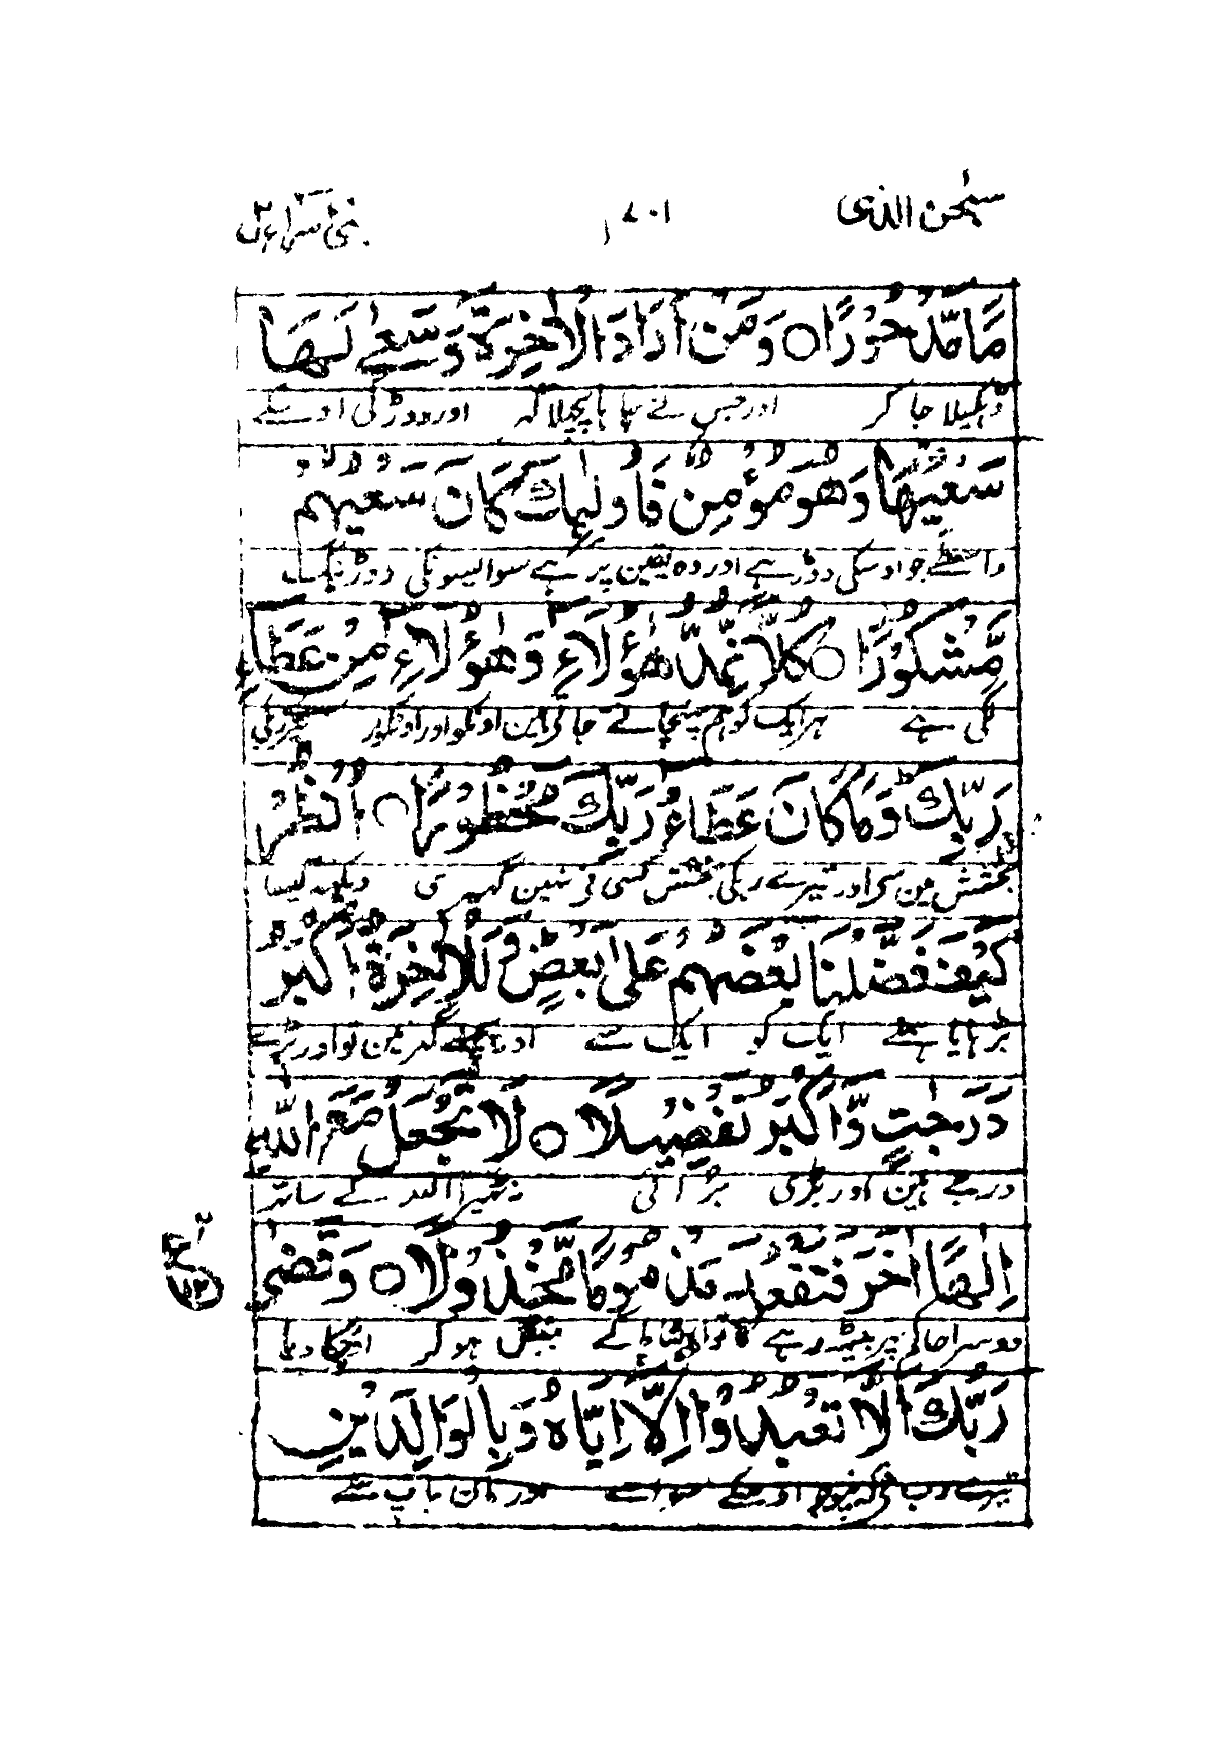 سبحٰن الذی ۷۰۱ بنی اسرائیل
مَّا مَّدْحُوْرًا ○ وَمَنْ اَرَادَ الْاٰخِرَةَ وَسَعٰی لَهَا
ڈہکیلا جا کر اور جس نے چاہا پچھلا گہر اور دوڑ کی اوسکے
سَعْیَهَا وَهُوَ مُؤْمِنٌ فَاُولٰٓئِكَ كَانَ سَعْیُهُمْ
واسطے جو اوسکی دوڑ ہے اور وہ یقین پر ہے سو ایسونکی دوڑ نیک
مَّشْكُوْرًا ○ كُلًّا نُّمِدُّ هٰٓؤُلَآءِ وَهٰٓؤُلَآءِ مِنْ عَطَآءِ
لگی ہے ہر ایک کو ہم پہنچائے جاتے ہین اونکو اور اونکو
رَبِّكَ وَمَا كَانَ عَطَآءُ رَبِّكَ مَحْظُوْرًا ○ اُنْظُرْ
بخشش مین سے اور تیرے ربکی بخشش کسی نے نہین گہیری دیکہہ کیسا
كَیْفَ فَضَّلْنَا بَعْضَهُمْ عَلٰی بَعْضٍ وَلَلْاٰخِرَةُ اَكْبَرُ
بڑہایا ہمنے ایک کو ایک سے اور پچھلے گہر مین تو اور بڑے
دَرَجٰتٍ وَّاَكْبَرُ تَفْضِیْلًا ○ لَا تَجْعَلْ مَعَ اللّٰهِ
درجے ہین اور بڑی بڑائی نہ ٹہیرا اللہ کے ساتہہ
اِلٰهًا اٰخَرَ فَتَقْعُدَ مَذْمُوْمًا مَّخْذُوْلًا ○ وَقَضٰی
دوسرا حاکم پہر بیٹہہ رہے گا تو بیکس ہو کر اور چکا دیا
رَبُّكَ اَلَّا تَعْبُدُوْٓا اِلَّآ اِیَّاهُ وَبِالْوَالِدَیْنِ
تیرے رب نے کہ نہ پوجو اوسکے سواے اور مان باپ سے